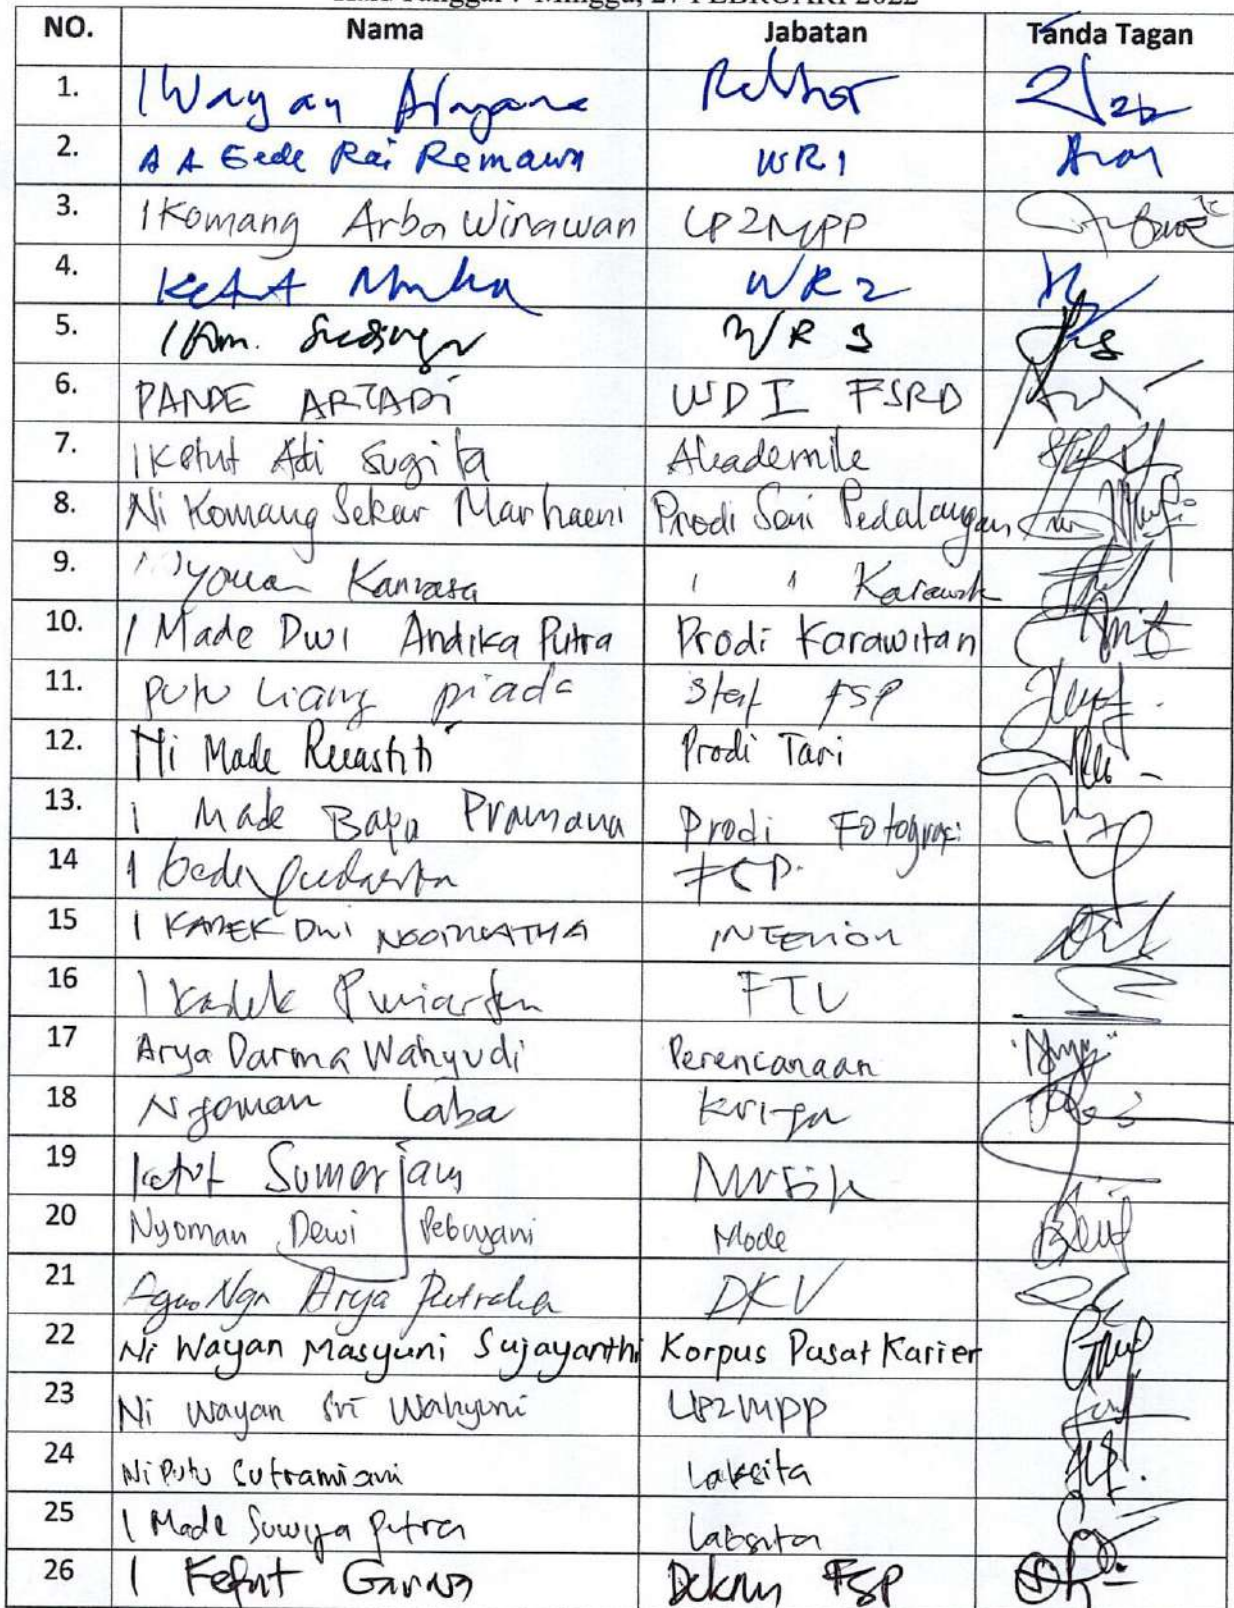 Hari/Tanggal : Minggu, 27 FEBRUARI 2022
NO. Nama Jabatan Tanda Tagan
1. I Wayan Rektor
2. A A Gede Rai Remawa WR1
3. I Komang Arba Wirawan LP2MPP
4. Ketut Muka WR 2
5. I Km. WR 3
6. PANDE ARTADI WD I FSRD
7. I Ketut Adi Sugita Akademik
8. Ni Komang Sekar Marhaeni Prodi Seni Pedalangan
9. Nyoman
10. I Made Dwi Andika Putra Prodi Karawitan
11. Putu Liang piada Staf FSP
12. Ni Made Ruastiti Prodi Tari
13. I Made Bayu Pramana Prodi Fotografi
14 I Gede
15 I KADEK Dwi INTERIOR
16 I Kadek Puriartha FTV
17 Arya Darma Wahyudi Perencanaan
18 Nyoman Laba Kriya
19 Ketut Sumerjana Musik
20 Nyoman Dewi Pebryani Mode
21 Agus Ngr Arya Putraka DKV
22 Ni Wayan Masyuni Sujayanthi Korpus Pusat Karier
23 Ni Wayan Sri Wahyuni LP2MPP
24 Ni Putu Sutramiani Laksita
25 I Made Suwija Putra Laksita
26 I Ketut Garwa Dekan FSP